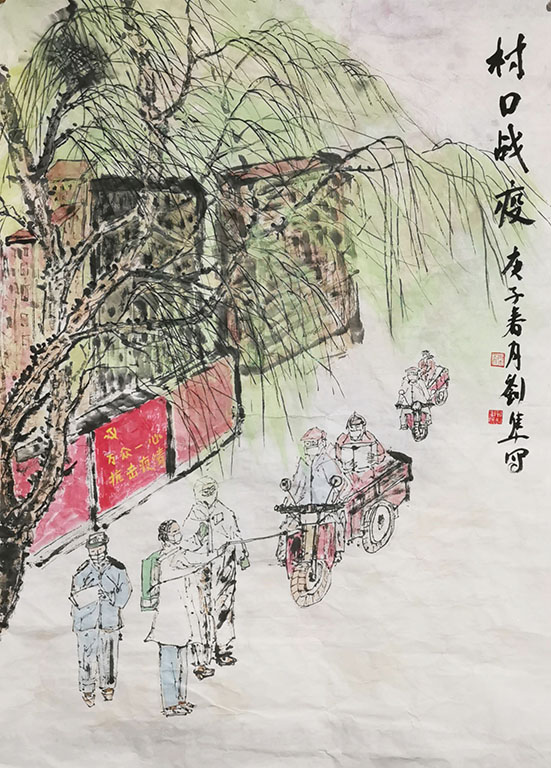 村口战疫
庚子春月刘集写
众一心
抗击疫情